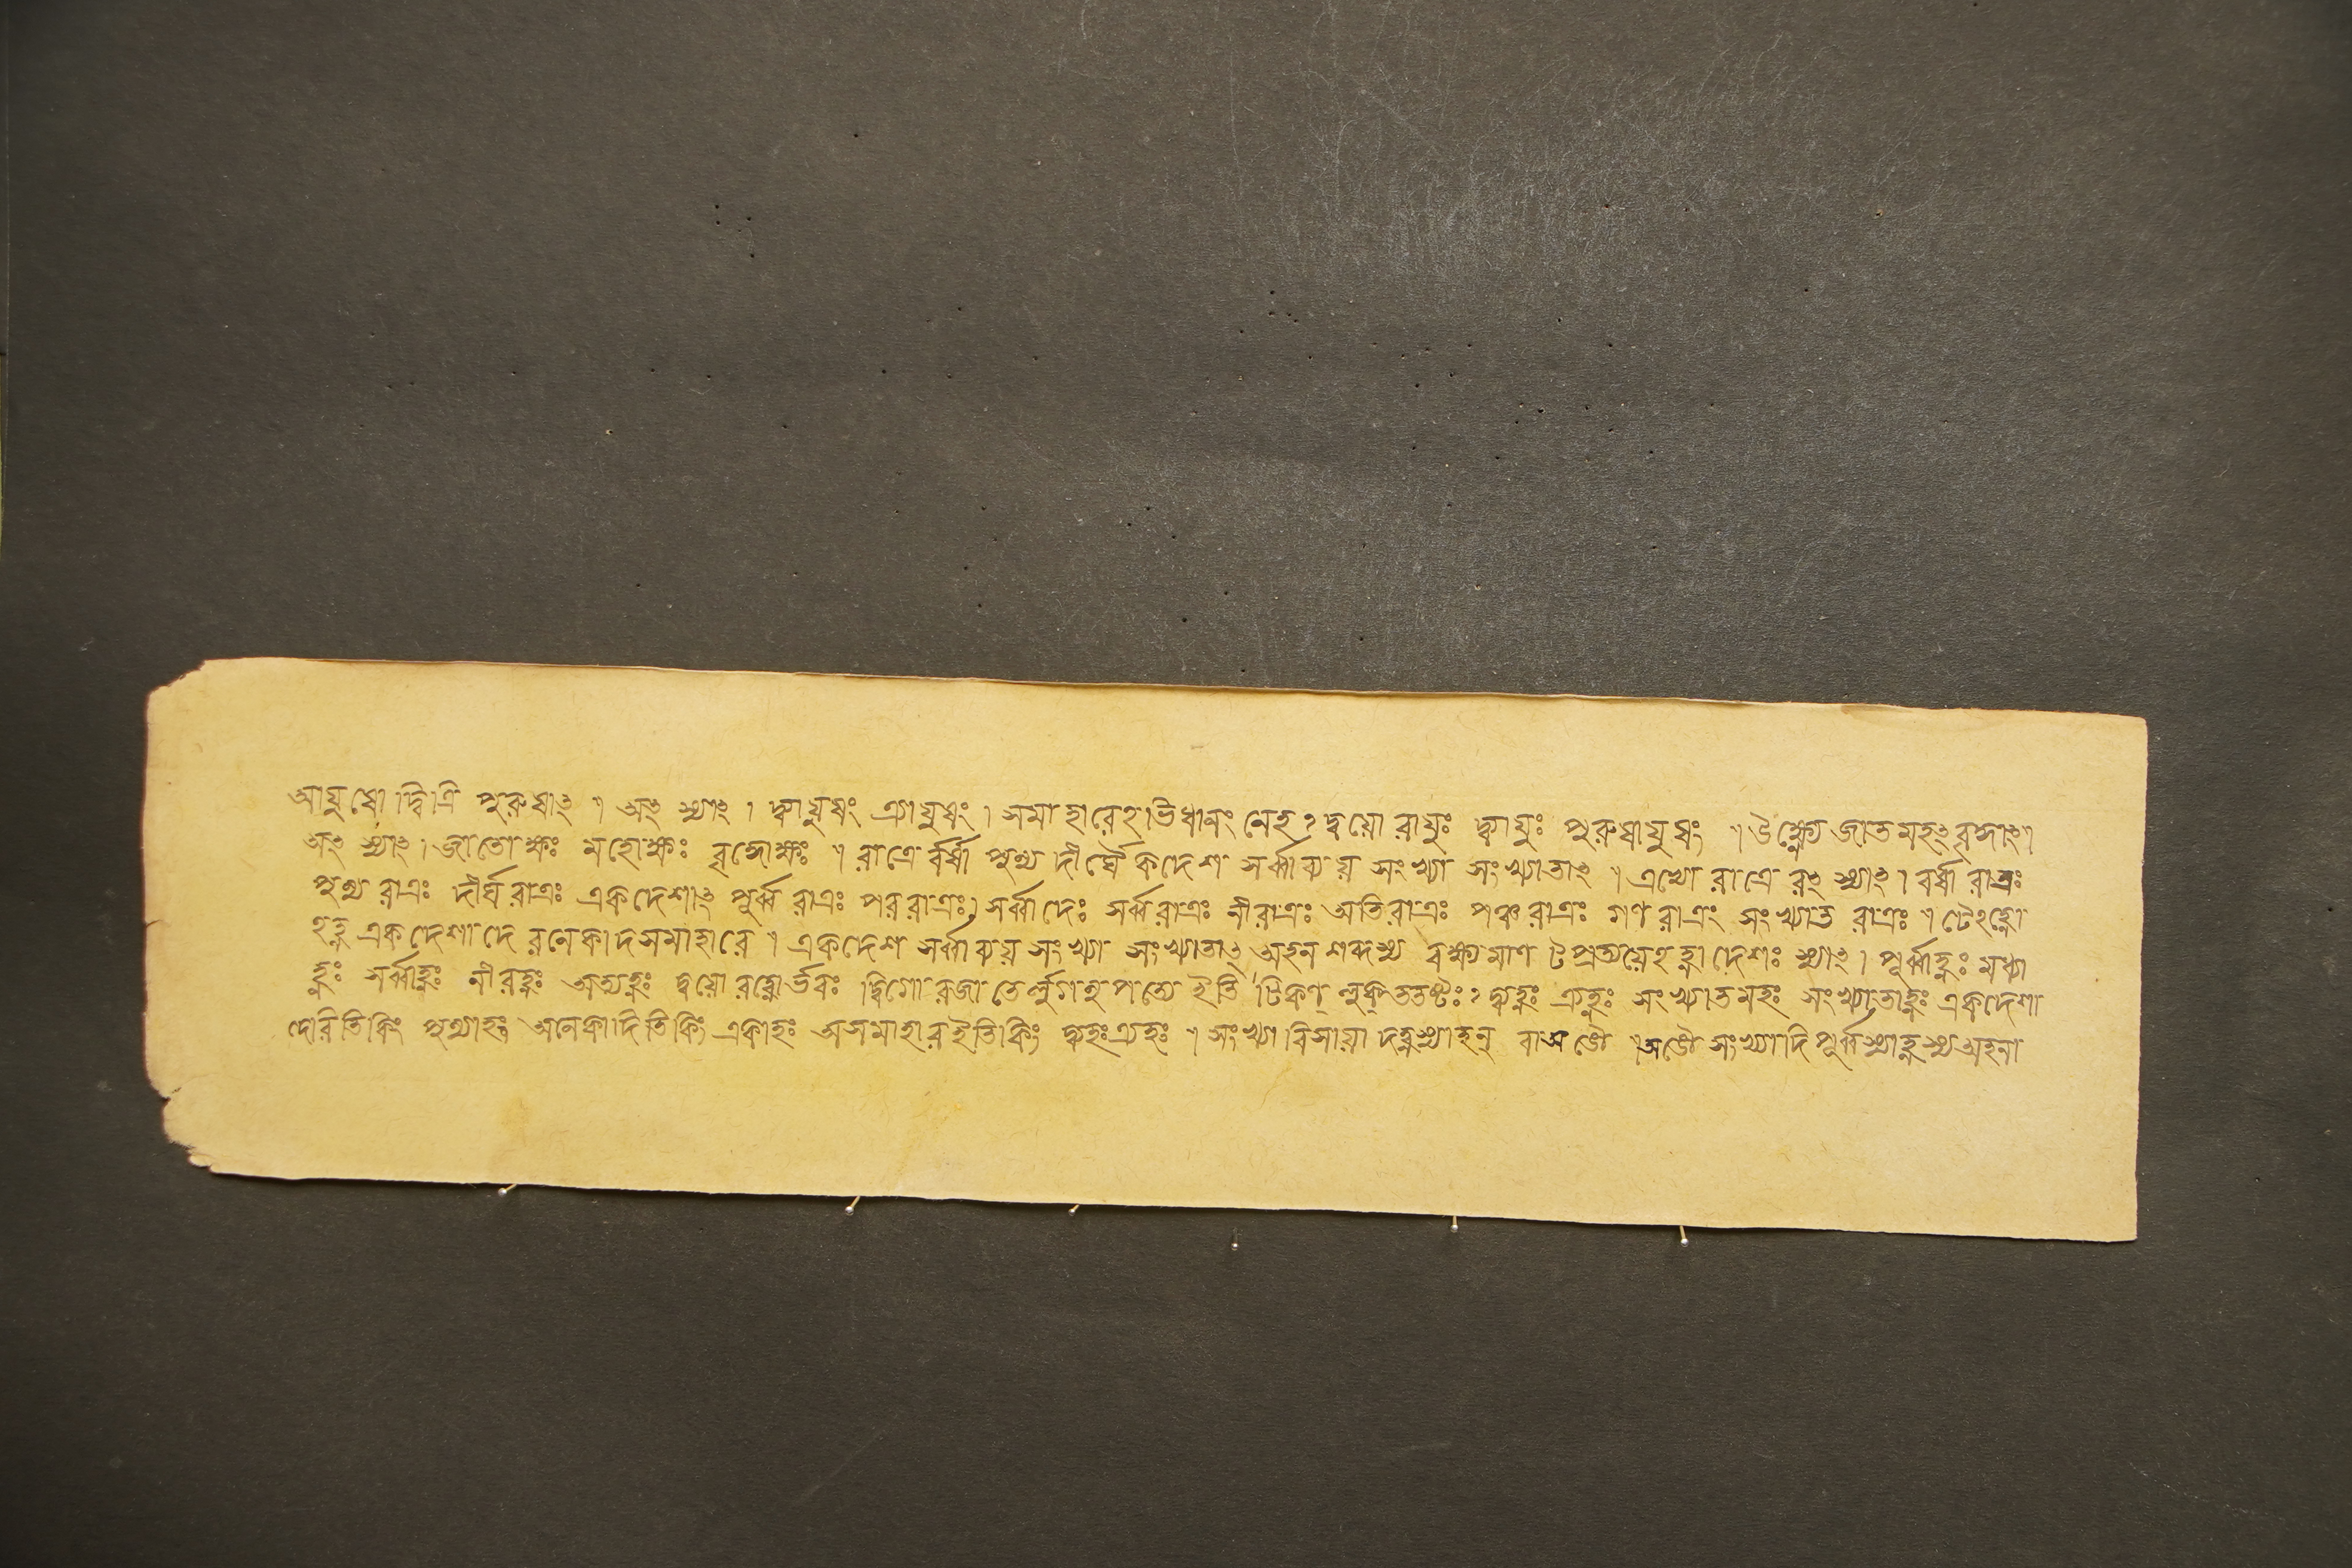 আয়ুষো দ্বিত্রি পুরুষাৎ ॥ অৎ স্যাৎ । দ্ব্যায়ুষং ত্র্যায়ুষং । সমাহারেঽভিধানং নেহ? দ্বয়ো রায়ুঃ দ্ব্যায়ুঃ পুরুষায়ুষং ॥ উক্ষ্ণো জাত মহৎ বৃদ্ধাৎ ॥
অৎ স্যাৎ । জাতোক্ষঃ মহোক্ষঃ বৃদ্ধোক্ষঃ ॥ রাত্রে র্বর্ষা পুণ্য দীর্ঘৈকদেশ সর্ব্বাব্যয় সংখ্যা সংখ্যাতাৎ ॥ এভ্যো রাত্রে রৎ স্যাৎ । বর্ষা রাত্রঃ
পুণ্য রাত্রঃ দীর্ঘ রাত্রঃ একদেশাৎ পূর্ব্ব রাত্রঃ পররাত্রঃ । সর্ব্বাদেঃ সর্ব্বরাত্রঃ নীরাত্রঃ অতিরাত্রঃ পঞ্চরাত্রঃ গণরাত্রং সংখ্যাত রাত্রঃ ॥ টেঽহ্নো
ঽহ্ন একদেশাদে রনেকাদসমাহারে ॥ একদেশ সর্ব্বাব্যয় সংখ্যা সংখ্যাতাৎ অহন শব্দস্য বক্ষ্যমাণ টপ্রত্যয়েঽহ্নাদেশঃ স্যাৎ । পূর্ব্বাহ্নঃ মধ্যা
হ্নঃ সর্ব্বাহ্নঃ নীরহ্নঃ অত্যহ্নঃ দ্বয়ো রহ্নোর্ভবঃ দ্বিগো রজাতের্লুগনপত্যে ইতি টিকণ্ লুক্ ততষ্টঃ? দ্ব্যহ্নঃ ত্র্যহ্নঃ সংখ্যাতমহঃ সংখ্যাতাহ্নঃ একদেশা
দেরিতিকিং পুণ্যাহং অনেকাদিতিকিং একাহঃ অসমাহার ইতিকিং দ্ব্যহঃ ত্র্যহঃ ॥ সংখ্যা বিসায়া দহ্নস্যাহন্ বা ঙৌ ॥ ঙৌ সংখ্যাদি পূর্ব্বস্যাহ্নস্য অহনা